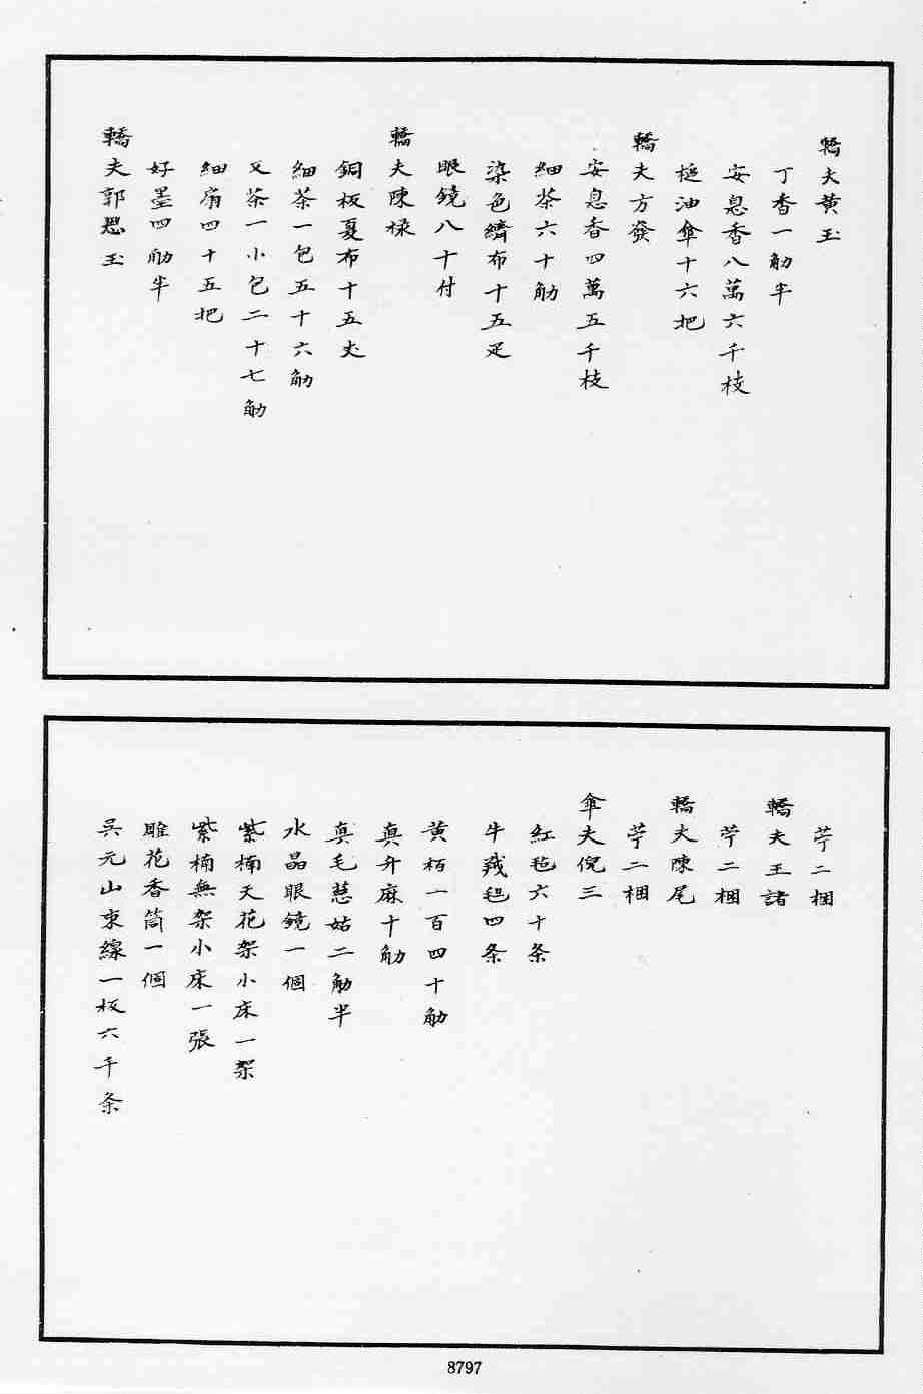 轎夫黄玉
丁香一觔半
安息香八萬六千枝
油傘十六把
轎夫方發
安息香四萬五千枝
細茶六十觔
染色繐布十五疋
眼鏡八十付
轎夫陳祿
銅板夏布十五丈
細茶一包五十六觔
又茶一小包二十七觔
細扇四十五把
好墨四觔半
轎夫郭恩玉
苧二梱
轎夫王諸
苧二梱
轎夫陳尾
苧二梱
傘夫倪三
紅毡六十条
牛羢毡四条
黄栢一百四十觔
真升麻十觔
真毛慈姑二觔半
水晶眼鏡一個
紫楠天花架小床一架
紫楠無架小床一張
雕花香筒一個
吳元山束縧一板六千条
8797